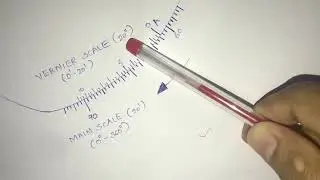 VERNIER SCALE (20')
(0'-20')
0
A
60
90
MAIN SCALE (20')
(0°-360°)